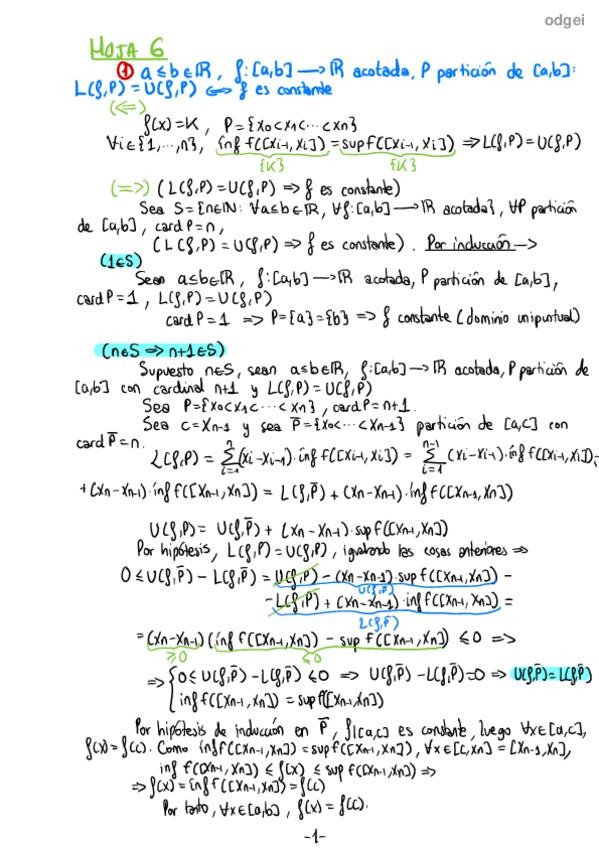 odgei
HOJA 6
① a ≤ b ∈ ℝ, f: [a,b] ⟶ ℝ acotada, P partición de [a,b]:
L(f,P) = U(f,P) ⟺ f es constante
(⇐)
f(x) = K, P = {x₀ < x₁ < ··· < xₙ}
∀i ∈ {1, ..., n}, inf f([xᵢ₋₁, xᵢ]) = sup f([xᵢ₋₁, xᵢ]) ⇒ L(f,P) = U(f,P)
{K} {K}
(⇒) (L(f,P) = U(f,P) ⇒ f es constante)
Sea S = {n ∈ ℕ: ∀a ≤ b ∈ ℝ, ∀f: [a,b] ⟶ ℝ acotada}, ∀P partición
de [a,b], card P = n,
(L(f,P) = U(f,P) ⇒ f es constante). Por inducción →
(1 ∈ S)
Sean a ≤ b ∈ ℝ, f: [a,b] ⟶ ℝ acotada, P partición de [a,b],
card P = 1, L(f,P) = U(f,P)
card P = 1 ⇒ P = {a} = {b} ⇒ f constante (dominio unipuntual)
(n ∈ S ⇒ n+1 ∈ S)
Supuesto n ∈ S, sean a ≤ b ∈ ℝ, f: [a,b] ⟶ ℝ acotada, P partición de
[a,b] con cardinal n+1 y L(f,P) = U(f,P)
Sea P = {x₀ < x₁ < ··· < xₙ}, card P = n+1.
Sea c = xₙ₋₁ y sea P̄ = {x₀ < ··· < xₙ₋₁} partición de [a,c] con
card P̄ = n.
L(f,P) = ∑ᵢ₌₁ⁿ (xᵢ - xᵢ₋₁) · inf f([xᵢ₋₁, xᵢ]) = ∑ᵢ₌₁ⁿ⁻¹ (xᵢ - xᵢ₋₁) · inf f([xᵢ₋₁, xᵢ]) +
+ (xₙ - xₙ₋₁) · inf f([xₙ₋₁, xₙ]) = L(f,P̄) + (xₙ - xₙ₋₁) · inf f([xₙ₋₁, xₙ])
U(f,P) = U(f,P̄) + (xₙ - xₙ₋₁) · sup f([xₙ₋₁, xₙ])
Por hipótesis, L(f,P) = U(f,P), igualando las cosas anteriores ⇒
0 ≤ U(f,P̄) - L(f,P̄) = U(f,P) - (xₙ - xₙ₋₁) · sup f([xₙ₋₁, xₙ]) -
U(f,P̄)
- L(f,P) + (xₙ - xₙ₋₁) · inf f([xₙ₋₁, xₙ]) =
L(f,P̄)
= (xₙ - xₙ₋₁) (inf f([xₙ₋₁, xₙ]) - sup f([xₙ₋₁, xₙ]) ≤ 0 ⇒
≥0 ≤0
⇒ { 0 ≤ U(f,P̄) - L(f,P̄) ≤ 0 ⇒ U(f,P̄) - L(f,P̄) = 0 ⇒ U(f,P̄) = L(f,P̄)
inf f([xₙ₋₁, xₙ]) = sup f([xₙ₋₁, xₙ])
Por hipótesis de inducción en P̄, f|[a,c] es constante, luego ∀x ∈ [a,c],
f(x) = f(c). Como inf f([xₙ₋₁, xₙ]) = sup f([xₙ₋₁, xₙ]), ∀x ∈ [c, xₙ] = [xₙ₋₁, xₙ],
inf f([xₙ₋₁, xₙ]) ≤ f(x) ≤ sup f([xₙ₋₁, xₙ]) ⇒
⇒ f(x) = inf f([xₙ₋₁, xₙ]) = f(c)
Por tanto, ∀x ∈ [a,b], f(x) = f(c).
-1-